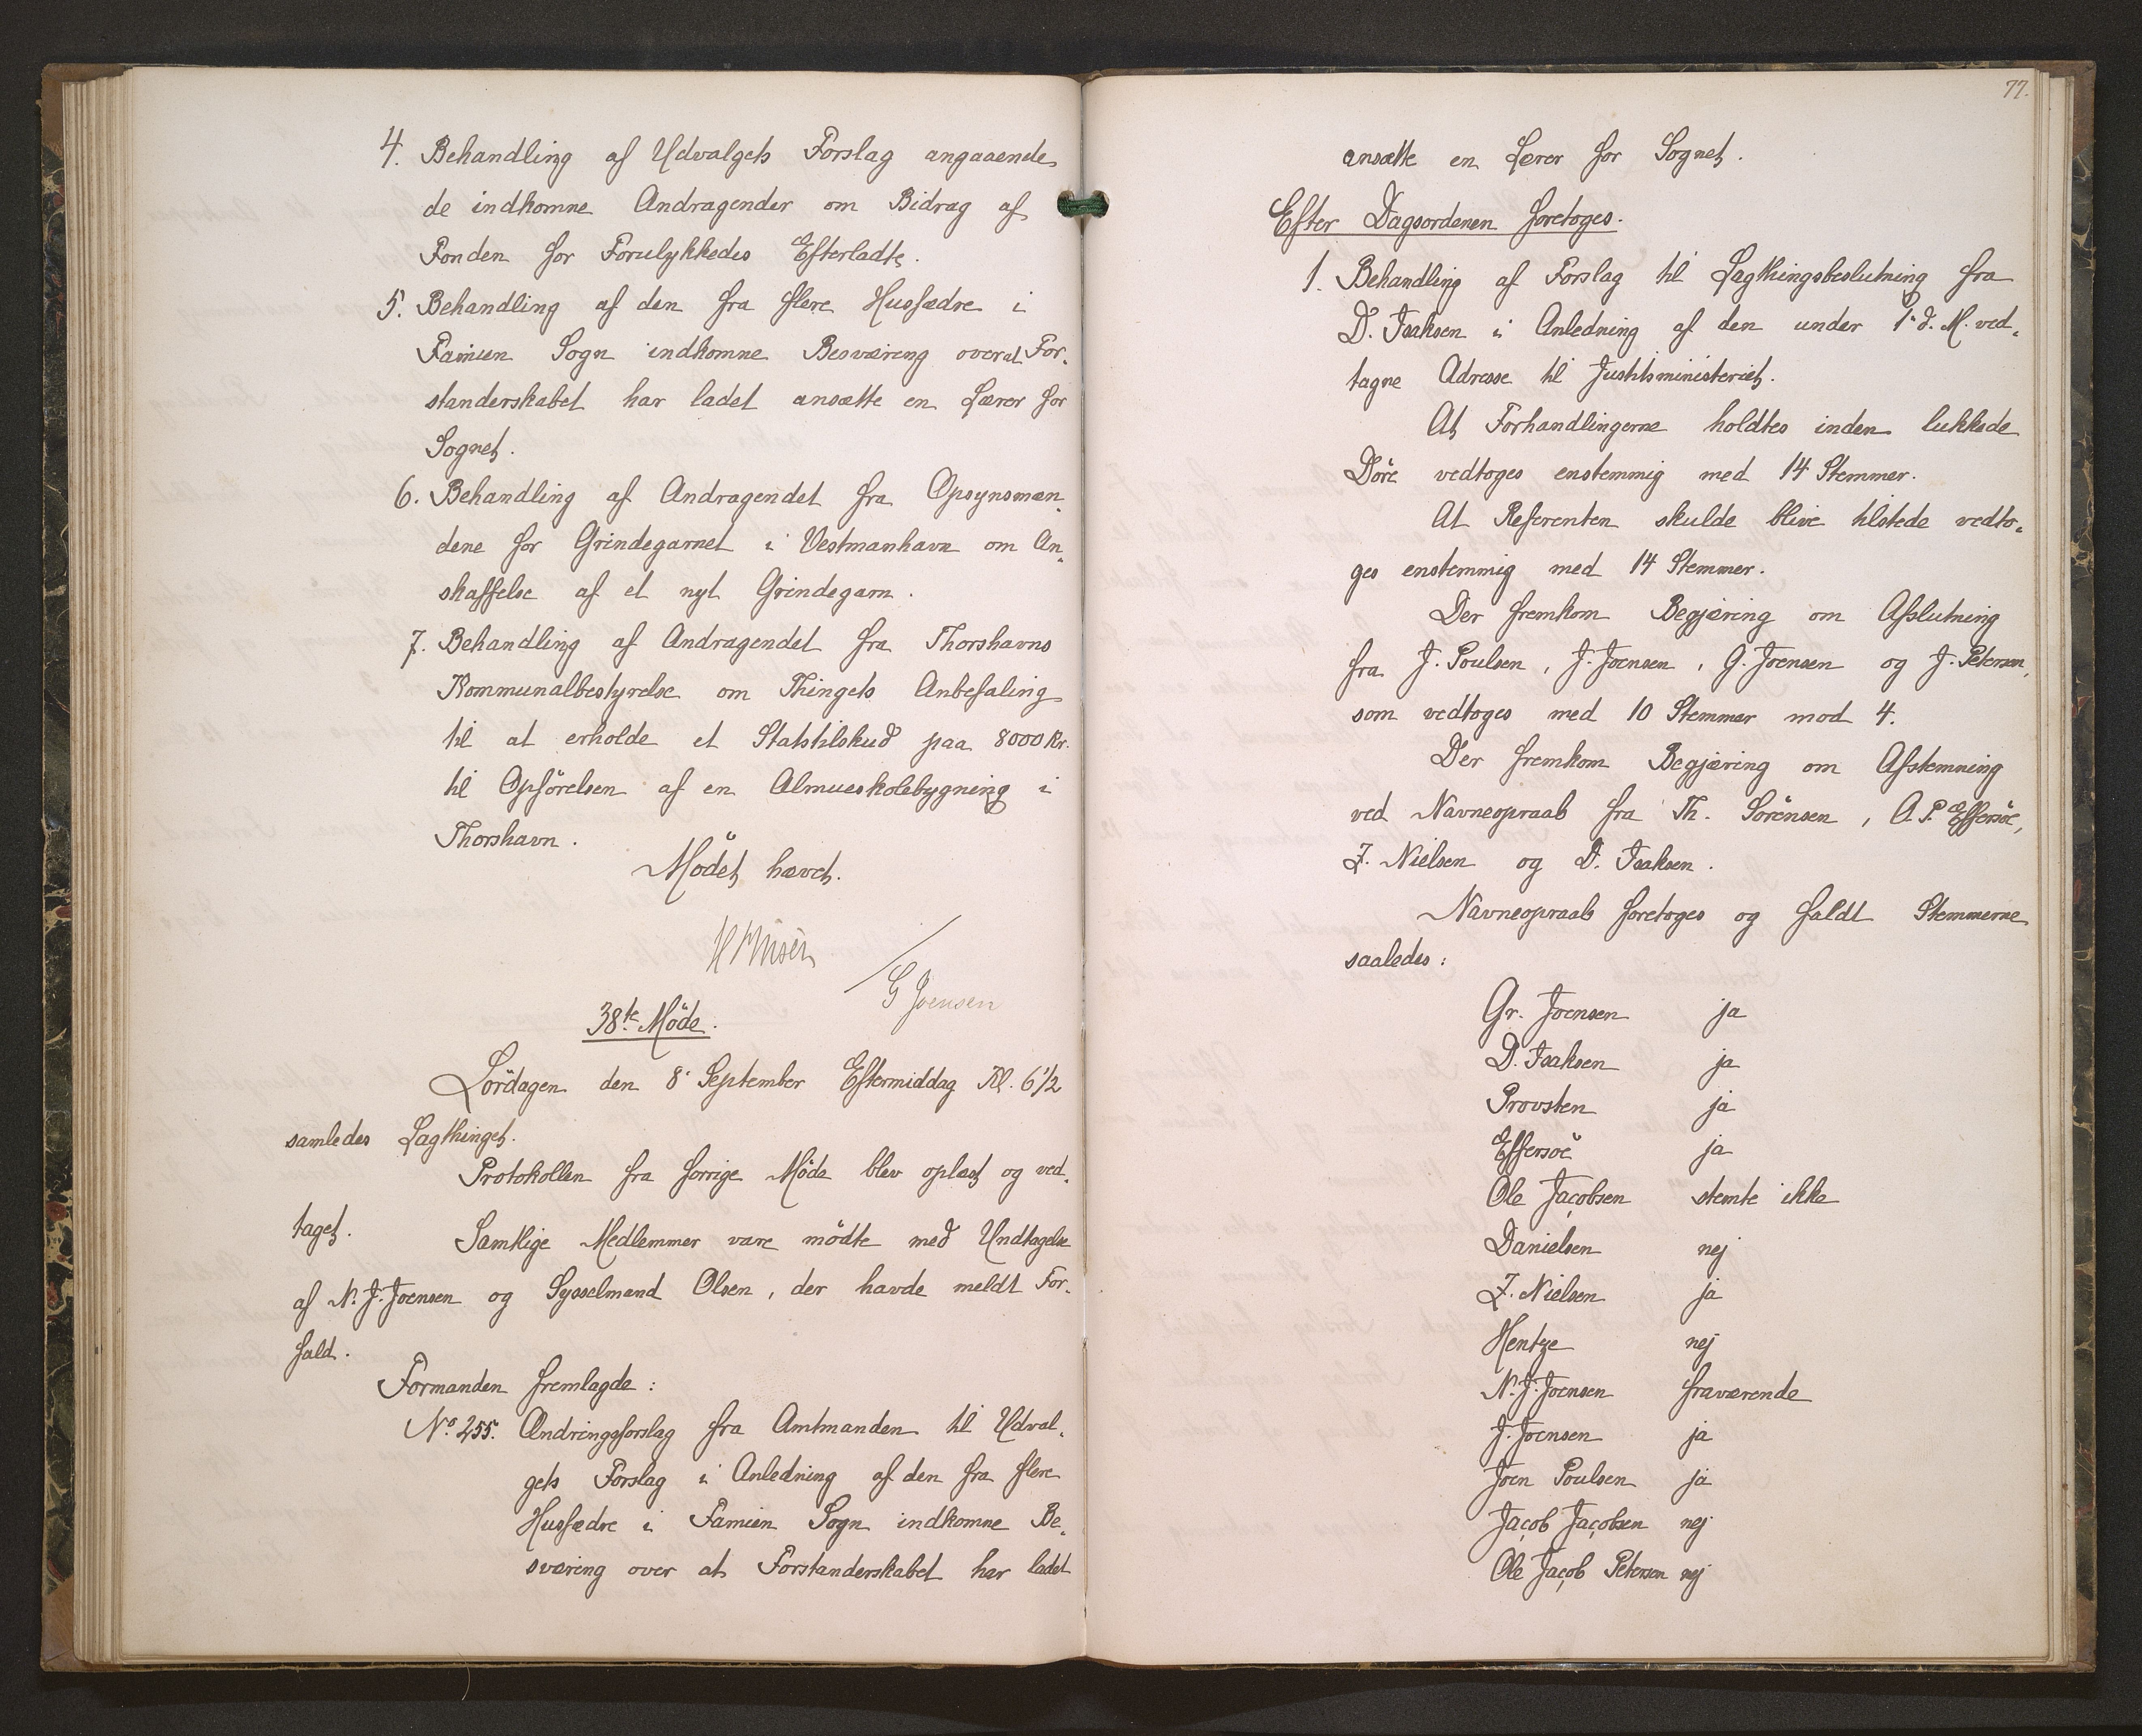 4. Behandling af Udvalgets Forslag angaaende
de indkomne Andragender om Bidrag af
Fonden for Forulykkedes Efterladte.
5. Behandling af den fra flere Husfædre i
Famien Sogn indkomne Besværing over at For-
standerskabet har ladet ansætte en Lærer for
Sognet.
6. Behandling af Andragendet fra Opsynsmæn-
dene for Grindegarnet i Vestmanhavn om An-
skaffelse af et nyt Grindegarn.
7. Behandling af Andragendet fra Thorshavns
Kommunalbestyrelse om Thingets Anbefaling
til at erholde et Statstilskud paa 8000 Kr.
til Opförelsen af en Almueskolebygning i
Thorshavn.
Mödet hævet.
G Joensen
38te Möde.
Lördagen den 8' September Eftermiddag Kl. 6 1/2
samledes Lagthinget.
Protokollen fra forrige Möde blev oplæst og ved-
taget.
Samtlige Medlemmer vare mödte med Undtagelse
af N. J. Joensen og Sysselmand Olsen, der havde meldt For-
fald.
Formanden fremlagde:
No. 255. Ændringsforslag fra Amtmanden til Udval-
gets Forslag i Anledning af den fra flere
Husfædre i Famien Sogn indkomne Be-
sværing over at Forstanderskabet har ladet
77.
ansætte en Lærer for Sognet.
Efter Dagsordenen foretoges.
1. Behandling af Forslag til Lagthingsbeslutning fra
D. Isaksen i Anledning af den under 1' d. M. ved-
tagne Adresse til Justitsministeriet.
At Forhandlingerne holdtes inden lukkede
Döre vedtoges enstemmig med 14 Stemmer.
At Referenten skulde blive tilstede vedto-
ges enstemmig med 14 Stemmer.
Der fremkom Begjæring om Afslutning
fra J. Poulsen, J. Joensen, G. Joensen og J. Petersen,
som vedtoges med 10 Stemmer mod 4.
Der fremkom Begjæring om Afstemning
ved Navneopraab fra Th. Sörensen, A. P. Effersöe,
Z. Nielsen og D. Isaksen.
Navneopraab foretoges og faldt Stemmerne
saaledes:
Gr. Joensen ja
D. Isaksen ja
Provsten ja
Effersöe ja
Ole Jacobsen stemte ikke
Danielsen nej
Z. Nielsen ja
Hentze nej
N. J. Joensen fraværende
J. Joensen ja
Joen Poulsen ja
Jacob Jacobsen nej
Ole Jacob Petersen nej